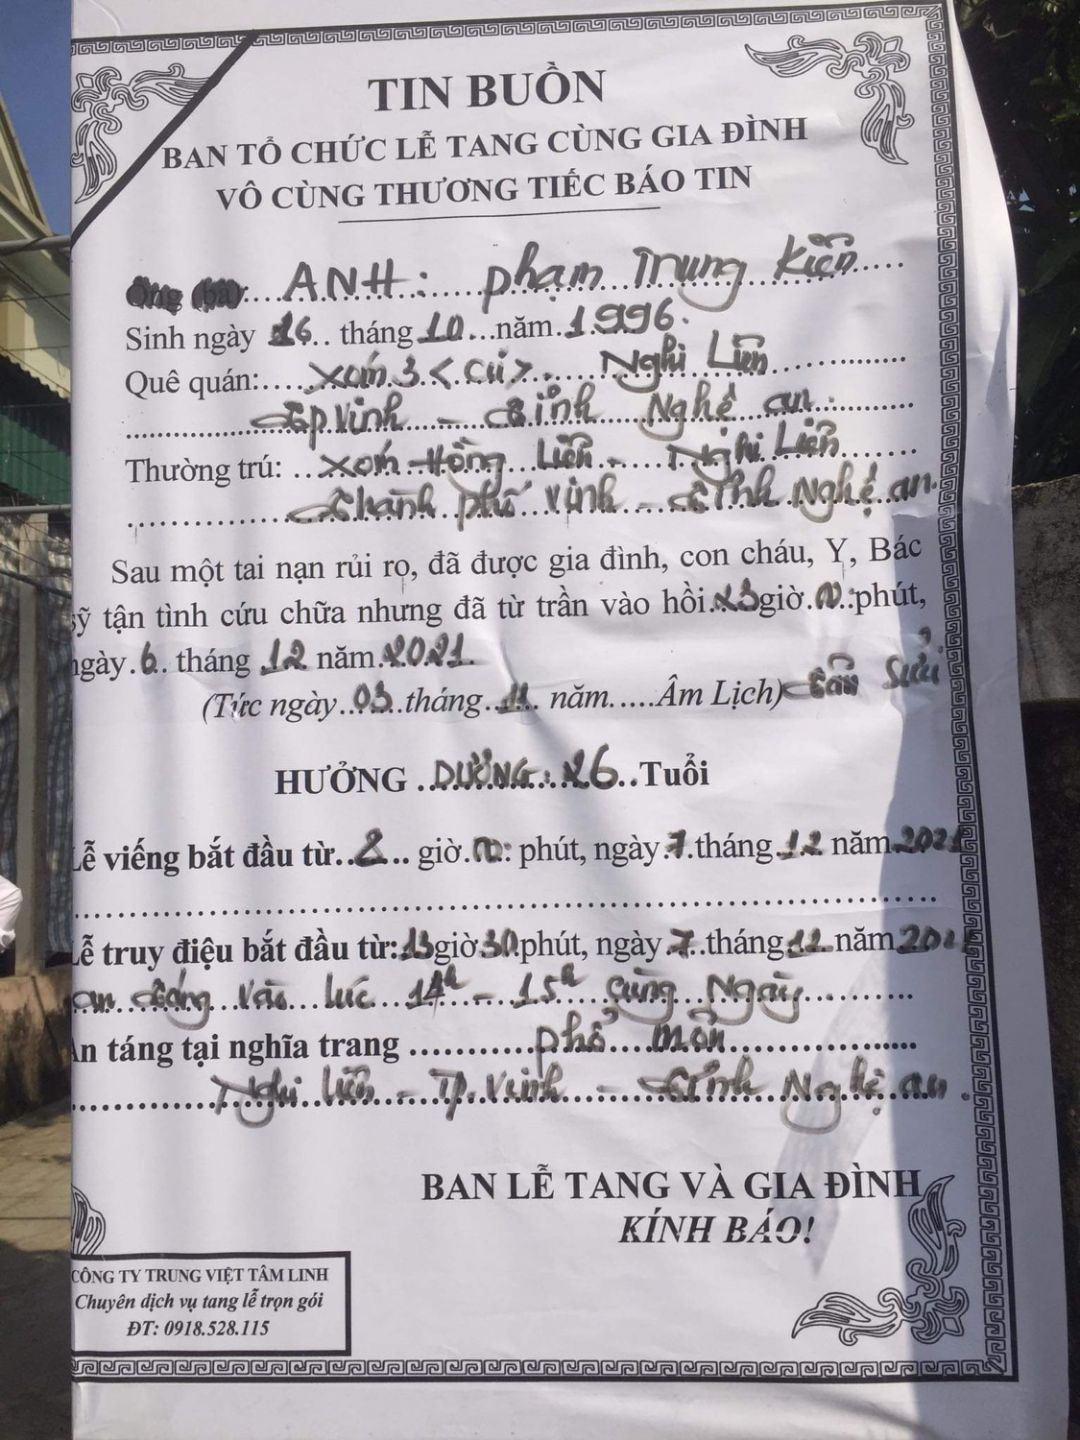 TIN BUỒN
BAN TỔ CHỨC LỄ TANG CÙNG GIA ĐÌNH
VÔ CÙNG THƯƠNG TIẾC BÁO TIN
Ông (bà):....ANH:....phạm Trung Kiên.....
Sinh ngày 26.. tháng 10...năm 1996.
Quê quán:.....xóm 3 <cũ>.....Nghi Liên............
tp Vinh – tỉnh Nghệ an............
Thường trú: ...xóm Hồng Liên – Nghi Liên.......
thành phố Vinh – tỉnh Nghệ an.
Sau một tai nạn rủi ro, đã được gia đình, con cháu, Y, Bác
sỹ tận tình cứu chữa nhưng đã từ trần vào hồi..23giờ.00.:phút,
ngày.6.. tháng .12 năm.2021.
(Tức ngày..03...tháng..11.. năm.....Âm Lịch) tân sửu
HƯỞNG ..DƯỠNG: 26..Tuổi
Lễ viếng bắt đầu từ..2... giờ.00: phút, ngày.7.tháng.12. năm 2021
Lễ truy điệu bắt đầu từ:13giờ 30.phút, ngày..7..tháng12.năm 2021
an táng vào lúc 14h – 15h cùng Ngày...........
An táng tại nghĩa trang ............phổ môn....................
Nghi liên – TP. Vinh – tỉnh Nghệ an.
BAN LỄ TANG VÀ GIA ĐÌNH
KÍNH BÁO!
CÔNG TY TRUNG VIỆT TÂM LINH
Chuyên dịch vụ tang lễ trọn gói
ĐT: 0918.528.115